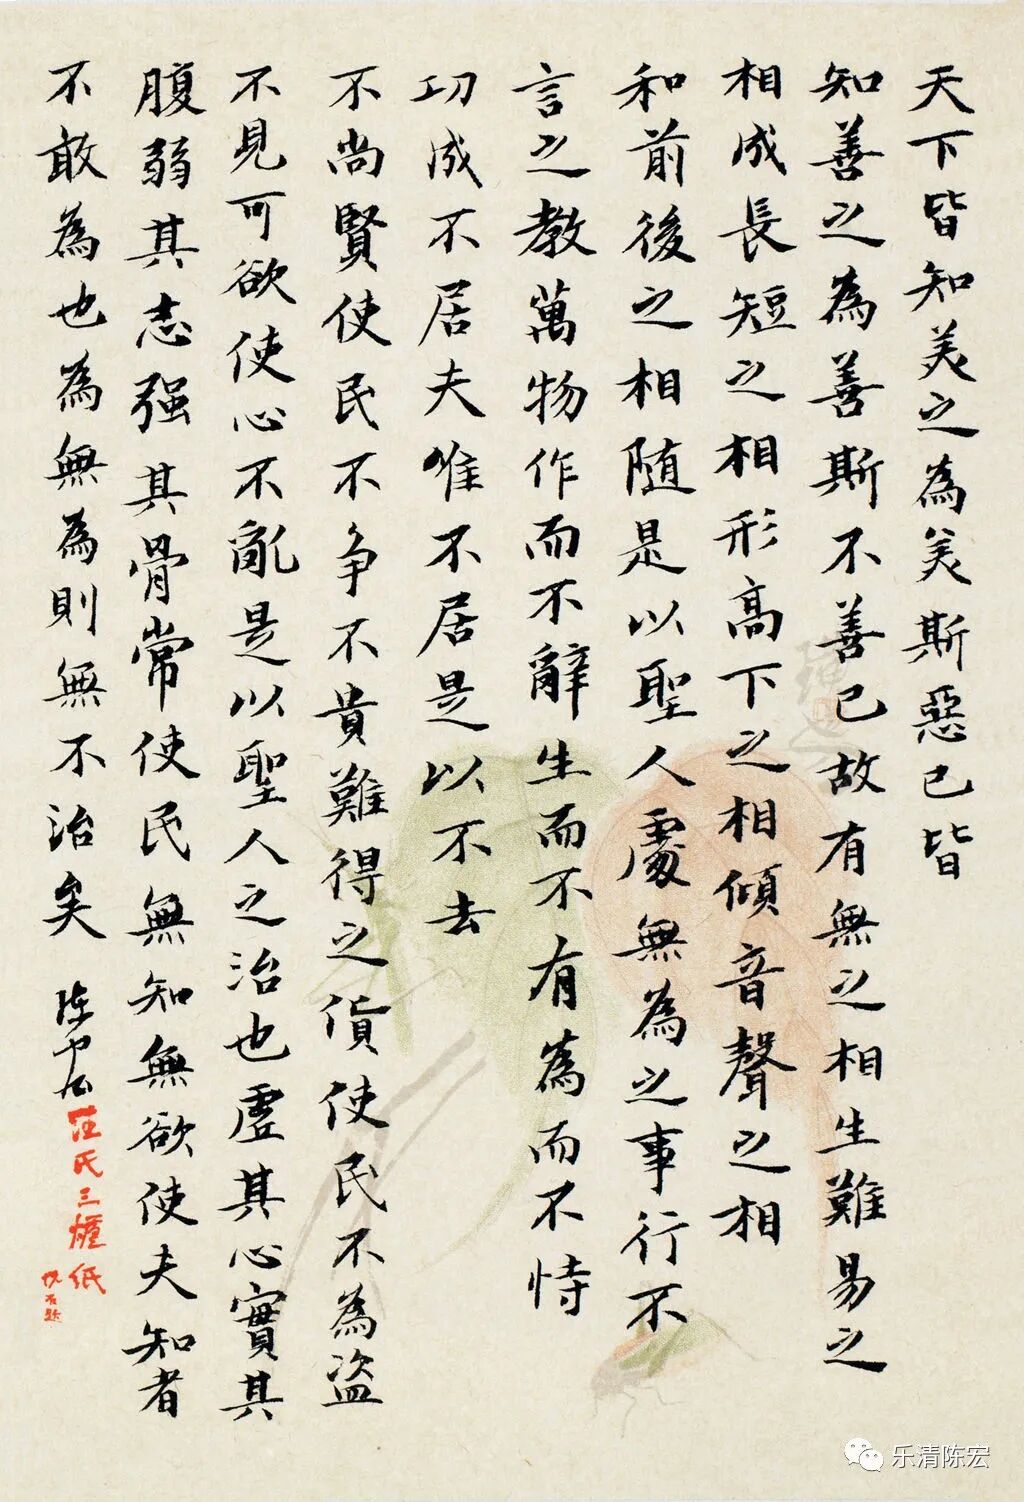 天下皆知美之為美斯惡已皆
知善之為善斯不善已故有無之相生難易之
相成長短之相形高下之相傾音聲之相
和前後之相随是以聖人處無為之事行不
言之教萬物作而不辭生而不有為而不恃
功成不居夫惟不居是以不去
不尚賢使民不争不貴難得之貨使民不為盗
不見可欲使心不亂是以聖人之治也虚其心實其
腹弱其志强其骨常使民無知無欲使夫知者
不敢為也為無為則無不治矣
汪氏三爟紙
乐清陈宏